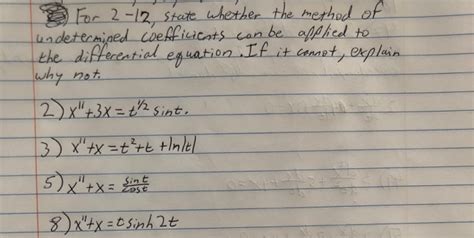 For 2-12, state whether the method of
undetermined coefficients can be applied to
the differential equation. If it cannot, explain
why not.
2) x''+3x = t^{1/2} sint.
3) x''+x = t²+t+ln|t|
5) x''+x = sint/cost
8) x''+x = t sinh 2t